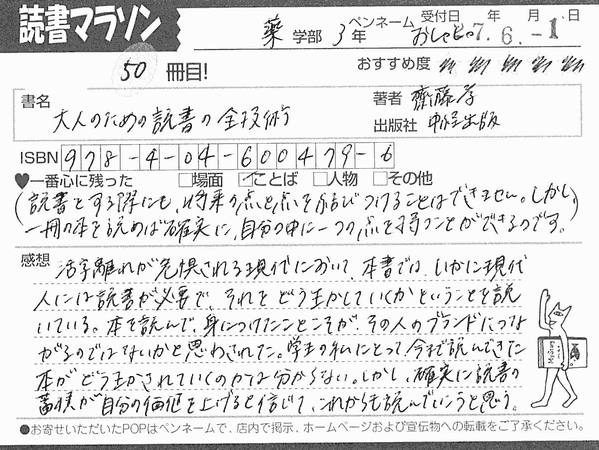 読書マラソン
薬 学部 3年 ペンネーム おしゃピの 受付日 7.年6.月-1日
50 冊目!
おすすめ度
書名 大人のための読書の全技術
著者 齋藤孝
出版社 中経出版
ISBN 978-4-04-600479-6
♥一番心に残った □場面 ☑ことば □人物 □その他
(読書をする際にも、将来の点と点を結びつけることはできません。しかし、
一冊の本を読めば確実に、自分の中に一つの点を持つことができるのです。)
感想 活字離れが危惧される現代において、本書では、いかに現代
人には読書が必要で、それをどう生かしていくかということを説
いている。本を読んで、身につけたことこそが、その人のブランドにつな
がるのではないかと思わされた。学生の私にとって、今まで読んできた
本がどう生かされていくのかは分からない。しかし、確実に読書の
蓄積が自分の価値を上げると信じて、これからも読んでいこうと思う。
●お寄せいただいたPOPはペンネームで、店内で掲示、ホームページおよび宣伝物への転載をご了承ください。